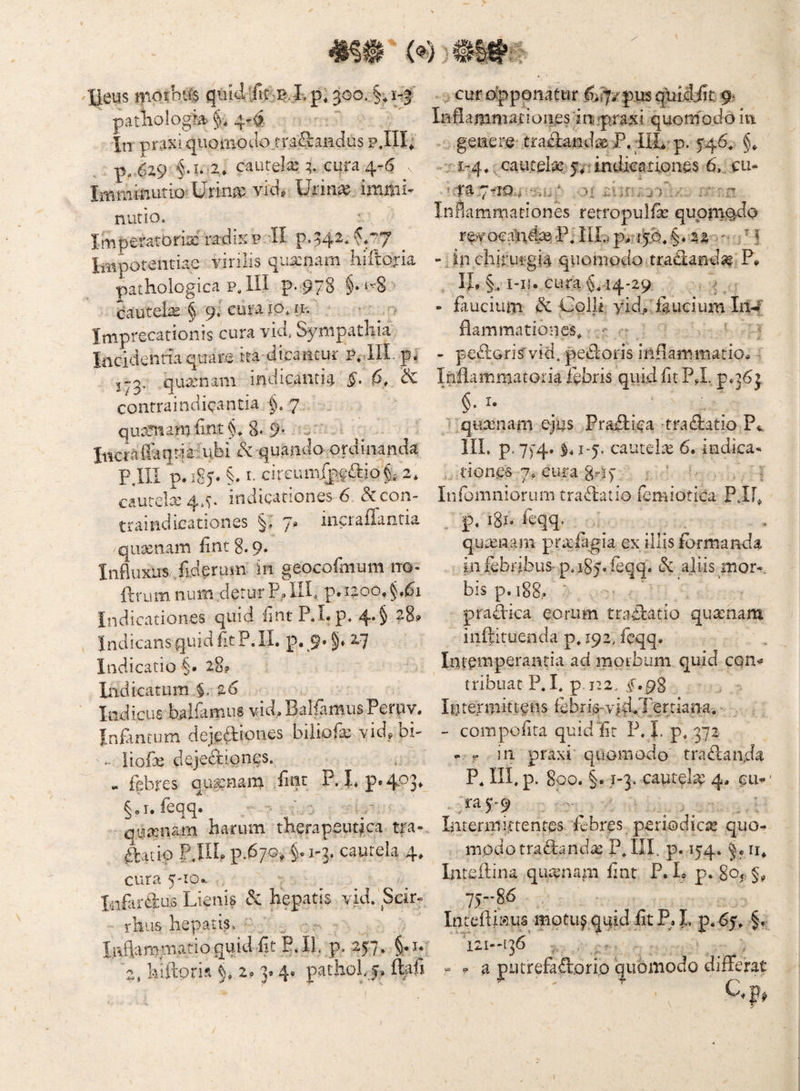 (*)
Ileus morbus quid sit P. I. p. 300. §. 1-3
pathologia §. 4-6
In praxi quomodo tractandus P. III.
p. 629 §. 1. 2. cautelæ 3. cura 4-6
Imminutio Urinæ vid. Urinæ immi-
nutio.
Imperatoriæ radix P II p. 342. §. 7
Impotentiae virilis quænam historia
pathologica P. III p. 978 §. 1-8
cautelæ § 9. cura 10. 11.
Imprecationis cura vid. Sympathia
Incidentia quare ita dicantur P. III. p.
173. quænam indicantia §. 6. &
contraindicantia §. 7
quænam sint §. 8. 9.
Incrassantia ubi & quando ordinanda
P. III p. 185. §. 1. circumspectio §. 2.
cautelæ 4. 5. indicationes 6 & con-
traindicationes §. 7. incrassantia
quænam sint 8. 9.
Influxus siderum in geocosmum no-
strum num detur P. III. p. 1200. §. 61
Indicationes quid sint P. I. p. 4. § 28.
Indicans quid sit P. II. p. 9. §. 27
Indicatio §. 28.
Indicatum §. 26
Indicus balsamus vid. Balsamus Peruv.
Infantum dejectiones biliosæ vid. bi-
- liosæ dejectiones.
- febres quænam sint P. I. p. 403.
§. 1. seqq.
quænam harum therapeutica tra-
ctatio P. III. p. 670. §. 1-3. cautela 4.
cura 5-10.
Infarctus Lienis & hepatis vid. Scir-
rhus hepatis.
Inflammatio quid sit P. II. p. 257. §. 1.
2. historia §. 2. 3. 4. pathol. 5. stasi
cur opponatur 6. 7. pus quid sit 9.
Inflammationes in praxi quomodo in
genere tractandæ P. III. p. 546. §.
1-4. cautelæ 5. indicationes 6. cu-
ra 7-10.
Inflammationes retropulsæ quomodo
revocandæ P. III. p. 150. §. 22
- in chirurgia quomodo tractandæ P.
II. §. 1-11. cura §. 14-29
- faucium & Colli vid. faucium In-
flammationes.
- pectoris vid. pectoris inflammatio.
Inflammatoria febris quid sit P. I. p. 363
§. 1.
quænam ejus Practica tractatio P.
III. p. 754. §. 1-5. cautelæ 6. indica-
tiones 7. cura 8-15
Insomniorum tractatio semiotica P. II.
p. 181. seqq.
quænam præsagia ex illis formanda
in febribus p. 185. seqq. & aliis mor-
bis p. 188.
practica eorum tractatio quænam
instituenda p. 192. seqq.
Intemperantia ad morbum quid con-
tribuat P. I. p. 112. §. 98
Intermittens febris vid. Tertiana.
- composita quid sit P. I. p. 372
- - in praxi quomodo tractanda
P. III. p. 800. §. 1-3. cautelæ 4. cu-
ra 5-9
Intermittentes febres periodicæ quo-
modo tractandæ P. III. p. 154. §. 11.
Intestina quænam sint P. I. p. 80. §.
75--86
Intestinus motus quid sit P. I. p. 65. §.
121--136
- - a putrefactorio quomodo differat
C. p.